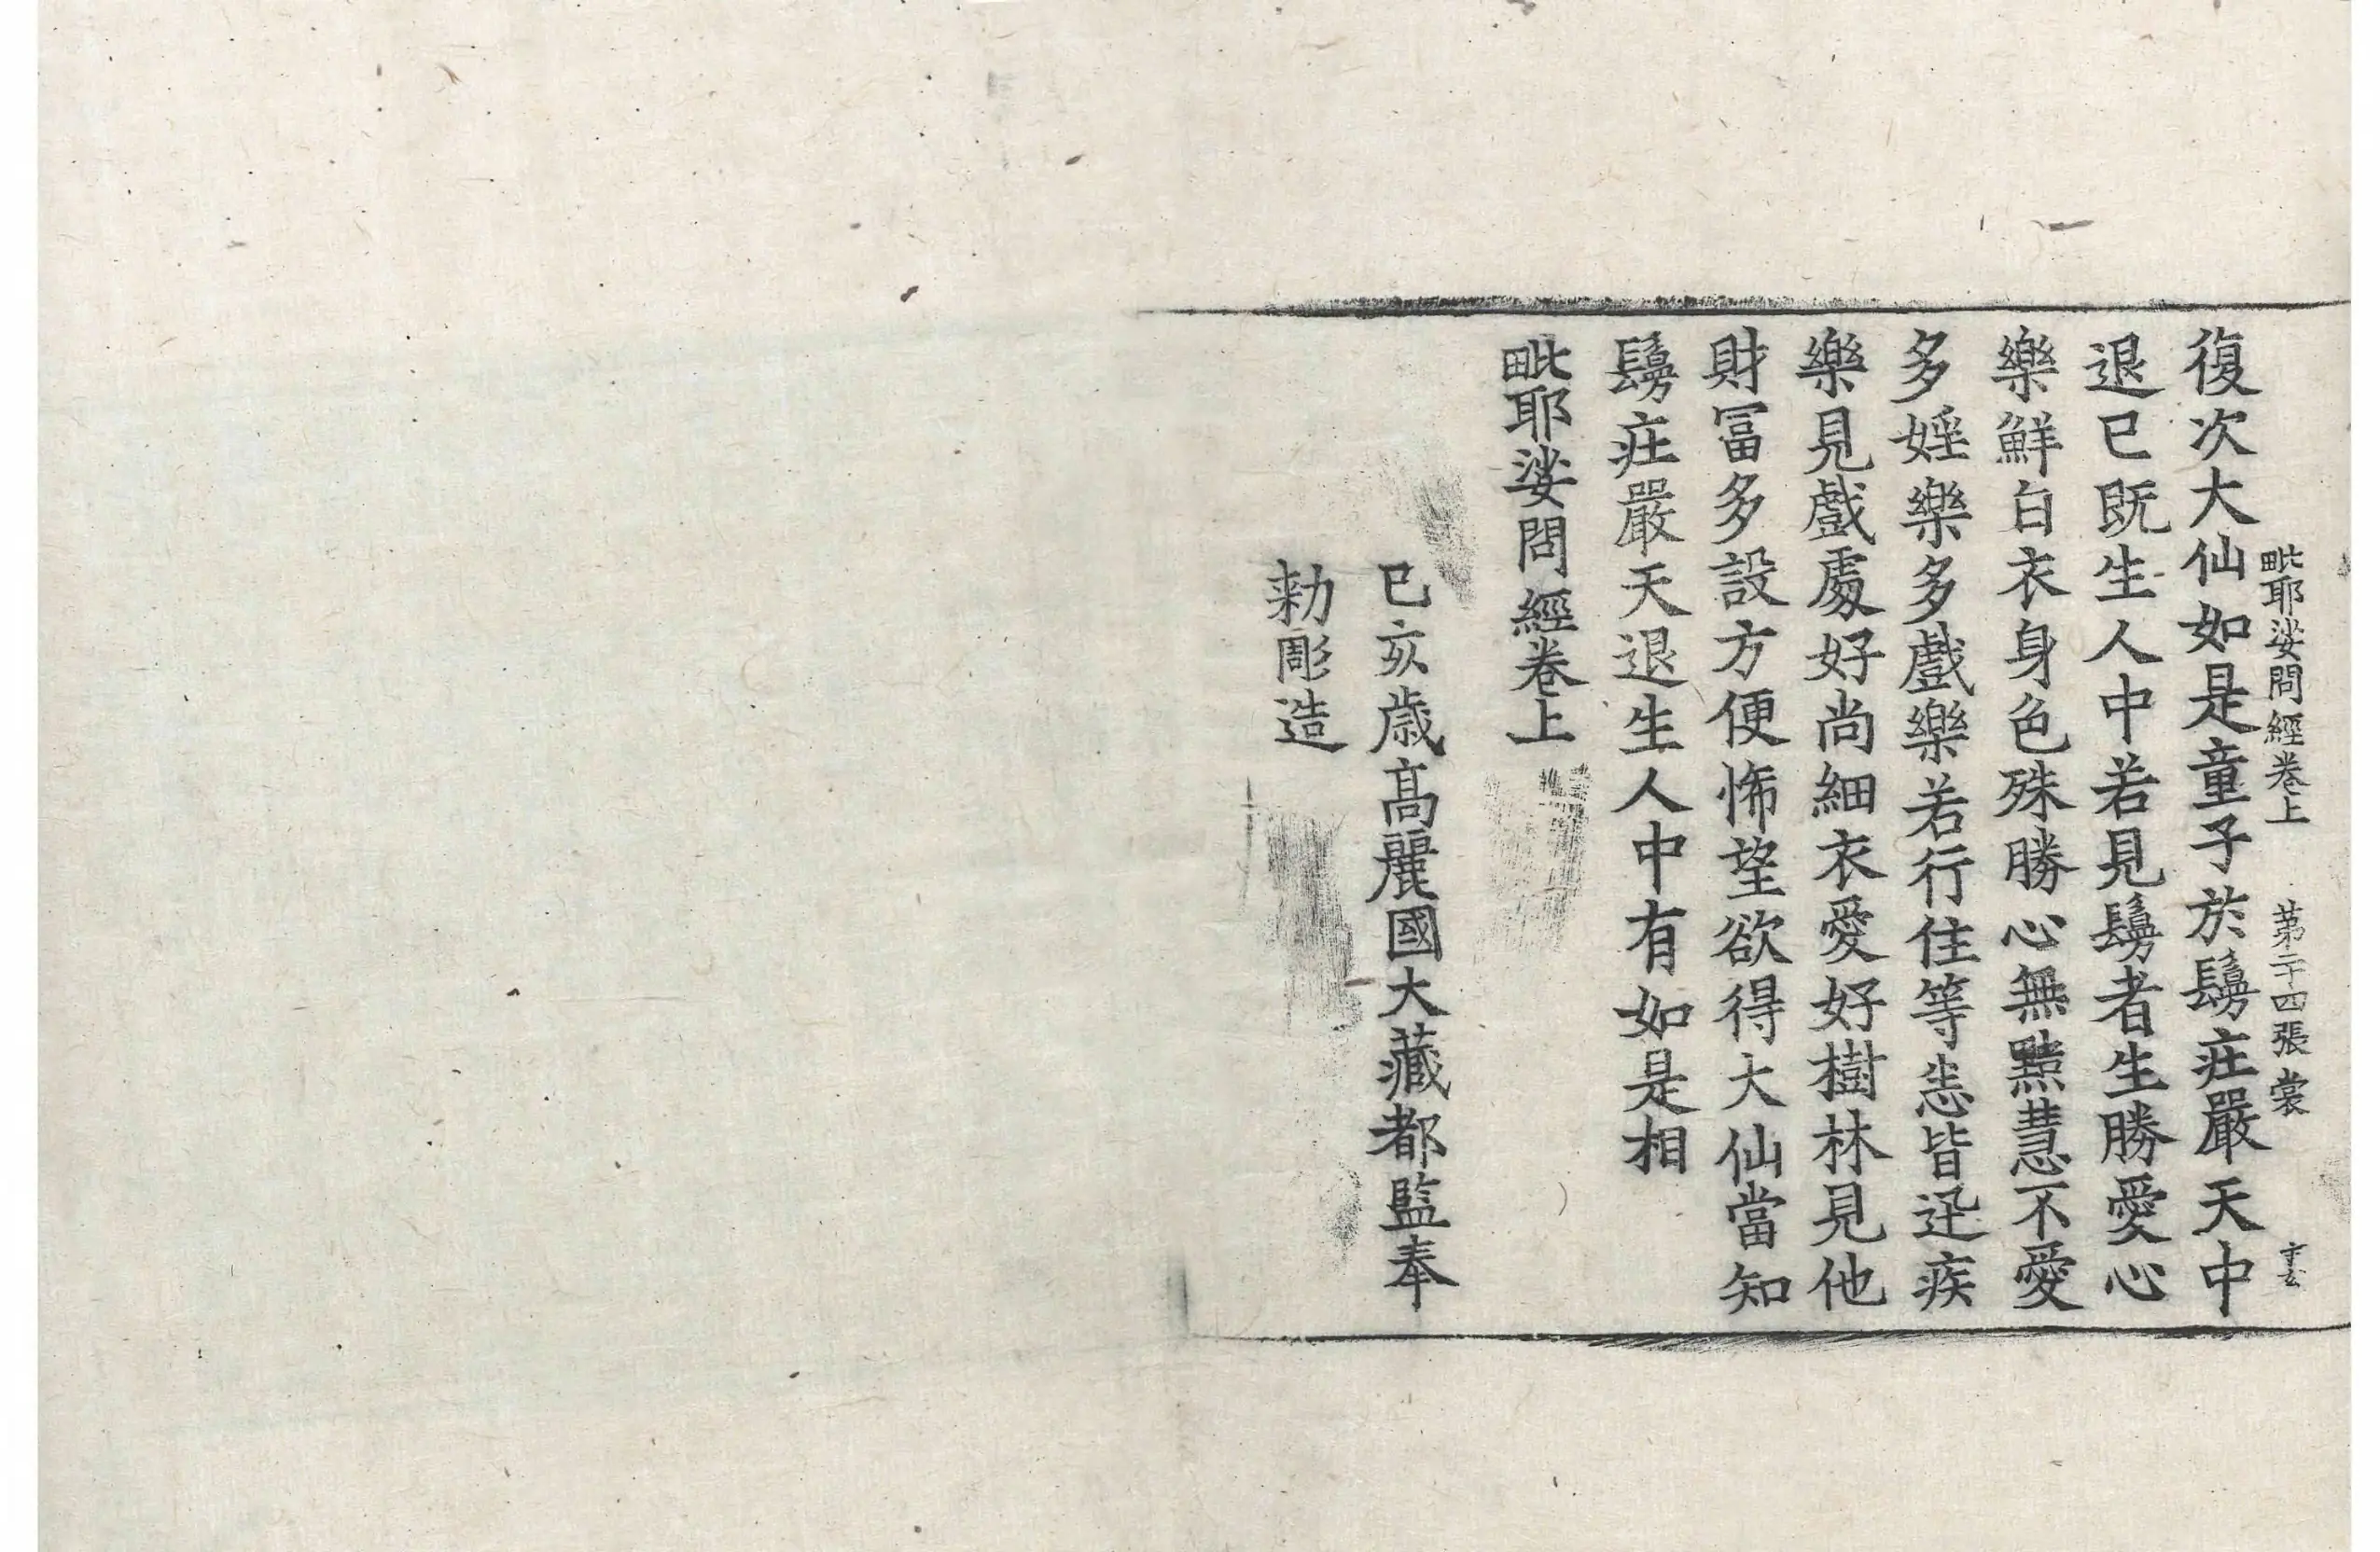 毗耶娑問經卷上 第二十四張 裳
復次大仙如是童子於鬘庄嚴天中
退已既生人中若見鬘者生勝愛心
樂鮮白衣身色殊勝心無黠慧不愛
多婬樂多戲樂若行住等恙皆迅疾
樂見戲處好尚細衣愛好樹林見他
財冨多設方便悕望欲得大仙當知
鬘庄嚴天退生人中有如是相
毗耶娑問經卷上
己亥歲高麗國大藏都監奉
勑彫造